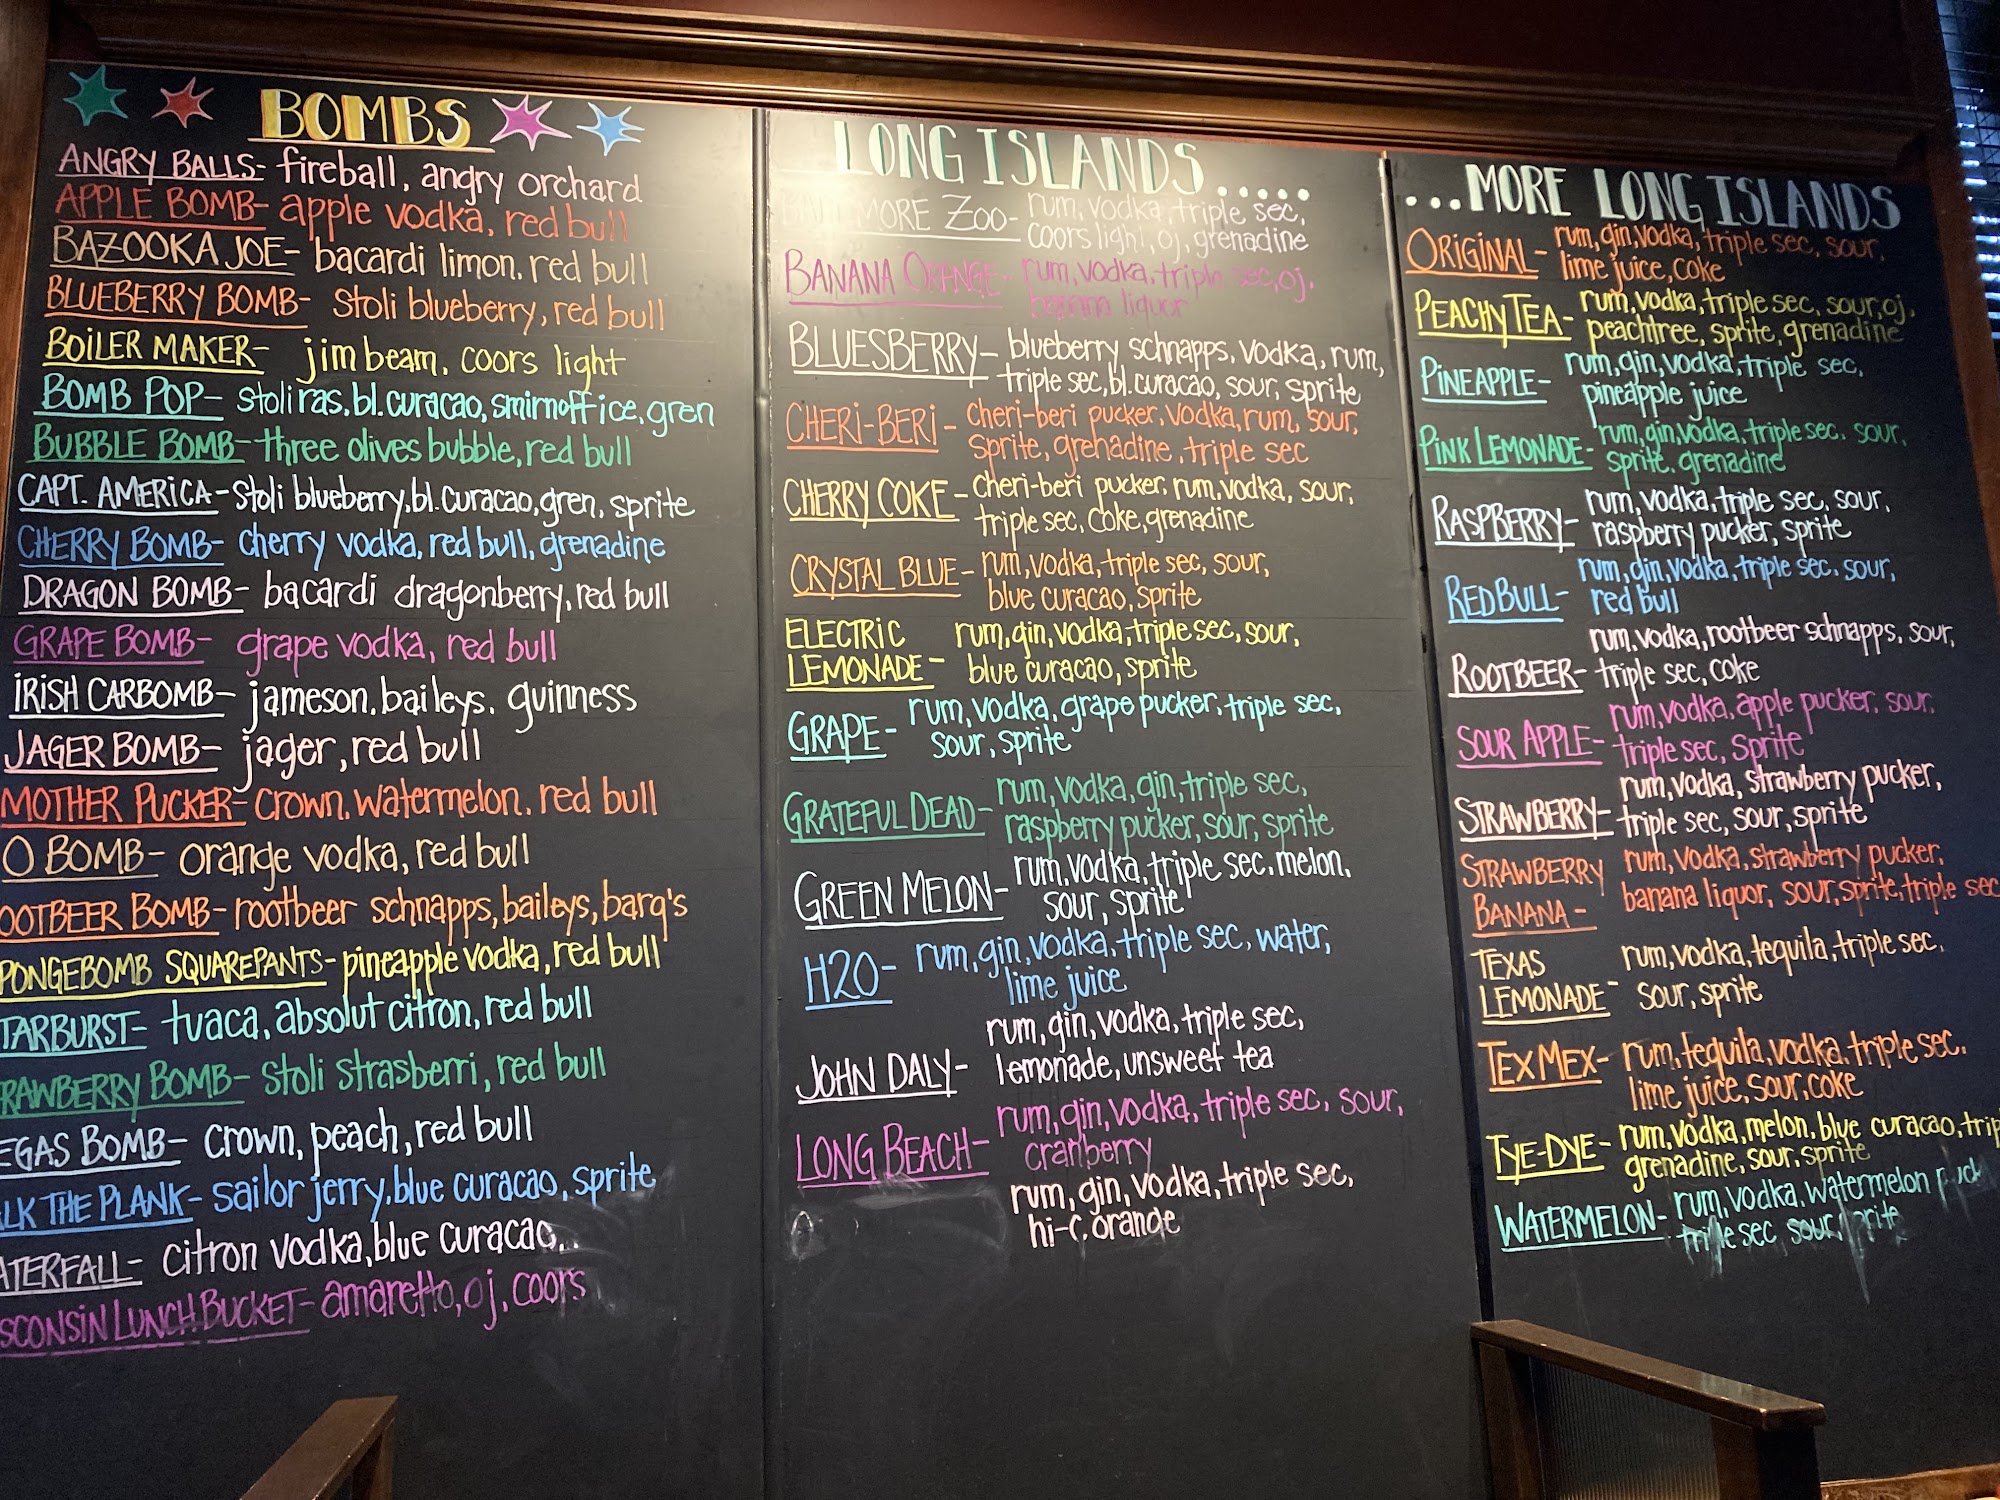 BOMBS
ANGRY BALLS- fireball, angry orchard
APPLE BOMB- apple vodka, red bull
BAZOOKA JOE- bacardi limon, red bull
BLUEBERRY BOMB- stoli blueberry, red bull
BOILER MAKER- jim beam, coors light
BOMB POP- stoli ras, bl. curacao, smirnoff ice, gren
BUBBLE BOMB- three olives bubble, red bull
CAPT. AMERICA- stoli blueberry, bl. curacao, gren, sprite
CHERRY BOMB- cherry vodka, red bull, grenadine
DRAGON BOMB- bacardi dragonberry, red bull
GRAPE BOMB- grape vodka, red bull
IRISH CARBOMB- jameson, baileys, guinness
JAGER BOMB- jager, red bull
MOTHER PUCKER- crown, watermelon, red bull
O BOMB- orange vodka, red bull
OOTBEER BOMB- rootbeer schnapps, baileys, barq's
PONGEBOMB SQUAREPANTS- pineapple vodka, red bull
TARBURST- tuaca, absolut citron, red bull
RAWBERRY BOMB- stoli strasberri, red bull
EGAS BOMB- crown, peach, red bull
LK THE PLANK- sailor jerry, blue curacao, sprite
ATERFALL- citron vodka, blue curacao
SCONSIN LUNCH BUCKET- amaretto, oj, coors
LONG ISLANDS.....
MORE ZOO- rum, vodka, triple sec,
coors light, oj, grenadine
BANANA ORANGE- rum, vodka, triple sec, oj,
banana liquor
BLUESBERRY- blueberry schnapps, vodka, rum,
triple sec, bl. curacao, sour, sprite
CHERI-BERI- cheri-beri pucker, vodka, rum, sour,
sprite, grenadine, triple sec
CHERRY COKE- cheri-beri pucker, rum, vodka, sour,
triple sec, coke, grenadine
CRYSTAL BLUE- rum, vodka, triple sec, sour,
blue curacao, sprite
ELECTRIC rum, gin, vodka, triple sec, sour,
LEMONADE- blue curacao, sprite
GRAPE- rum, vodka, grape pucker, triple sec,
sour, sprite
GRATEFUL DEAD- rum, vodka, gin, triple sec,
raspberry pucker, sour, sprite
GREEN MELON- rum, vodka, triple sec, melon,
sour, sprite
H2O- rum, gin, vodka, triple sec, water,
lime juice
rum, gin, vodka, triple sec,
JOHN DALY- lemonade, unsweet tea
LONG BEACH- rum, gin, vodka, triple sec, sour,
cranberry
rum, gin, vodka, triple sec,
hi-c orange
...MORE LONG ISLANDS
ORIGINAL- rum, gin, vodka, triple sec, sour,
lime juice, coke
PEACHY TEA- rum, vodka, triple sec, sour, oj,
peachtree, sprite, grenadine
PINEAPPLE- rum, gin, vodka, triple sec,
pineapple juice
PINK LEMONADE- rum, gin, vodka, triple sec, sour,
sprite, grenadine
RASPBERRY- rum, vodka, triple sec, sour,
raspberry pucker, sprite
RED BULL- rum, gin, vodka, triple sec, sour,
red bull
rum, vodka, rootbeer schnapps, sour,
ROOTBEER- triple sec, coke
SOUR APPLE- rum, vodka, apple pucker, sour,
triple sec, sprite
STRAWBERRY- rum, vodka, strawberry pucker,
triple sec, sour, sprite
STRAWBERRY rum, vodka, strawberry pucker,
BANANA- banana liquor, sour, sprite, triple sec
TEXAS rum, vodka, tequila, triple sec,
LEMONADE- sour, sprite
TEX MEX- rum, tequila, vodka, triple sec,
lime juice, sour, coke
TYE-DYE- rum, vodka, melon, blue curacao, trip
grenadine, sour, sprite
WATERMELON- rum, vodka, watermelon puck
triple sec, sour, sprite